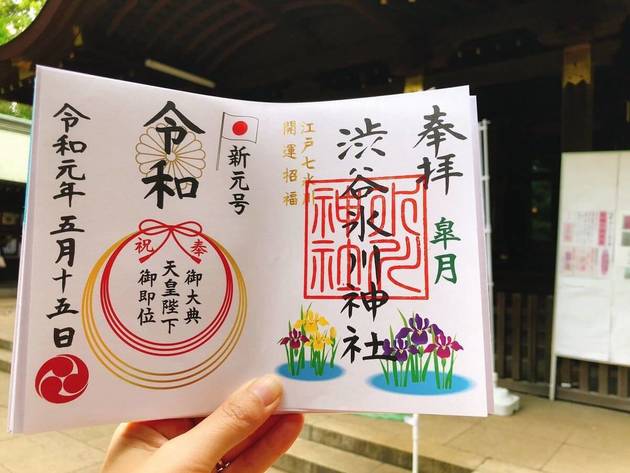 奉拝
皐月
渋谷氷川神社
氷川
神社
江戸七氷川
開運招福
新元号
令和
奉祝
御大典
天皇陛下
御即位
令和元年五月十五日